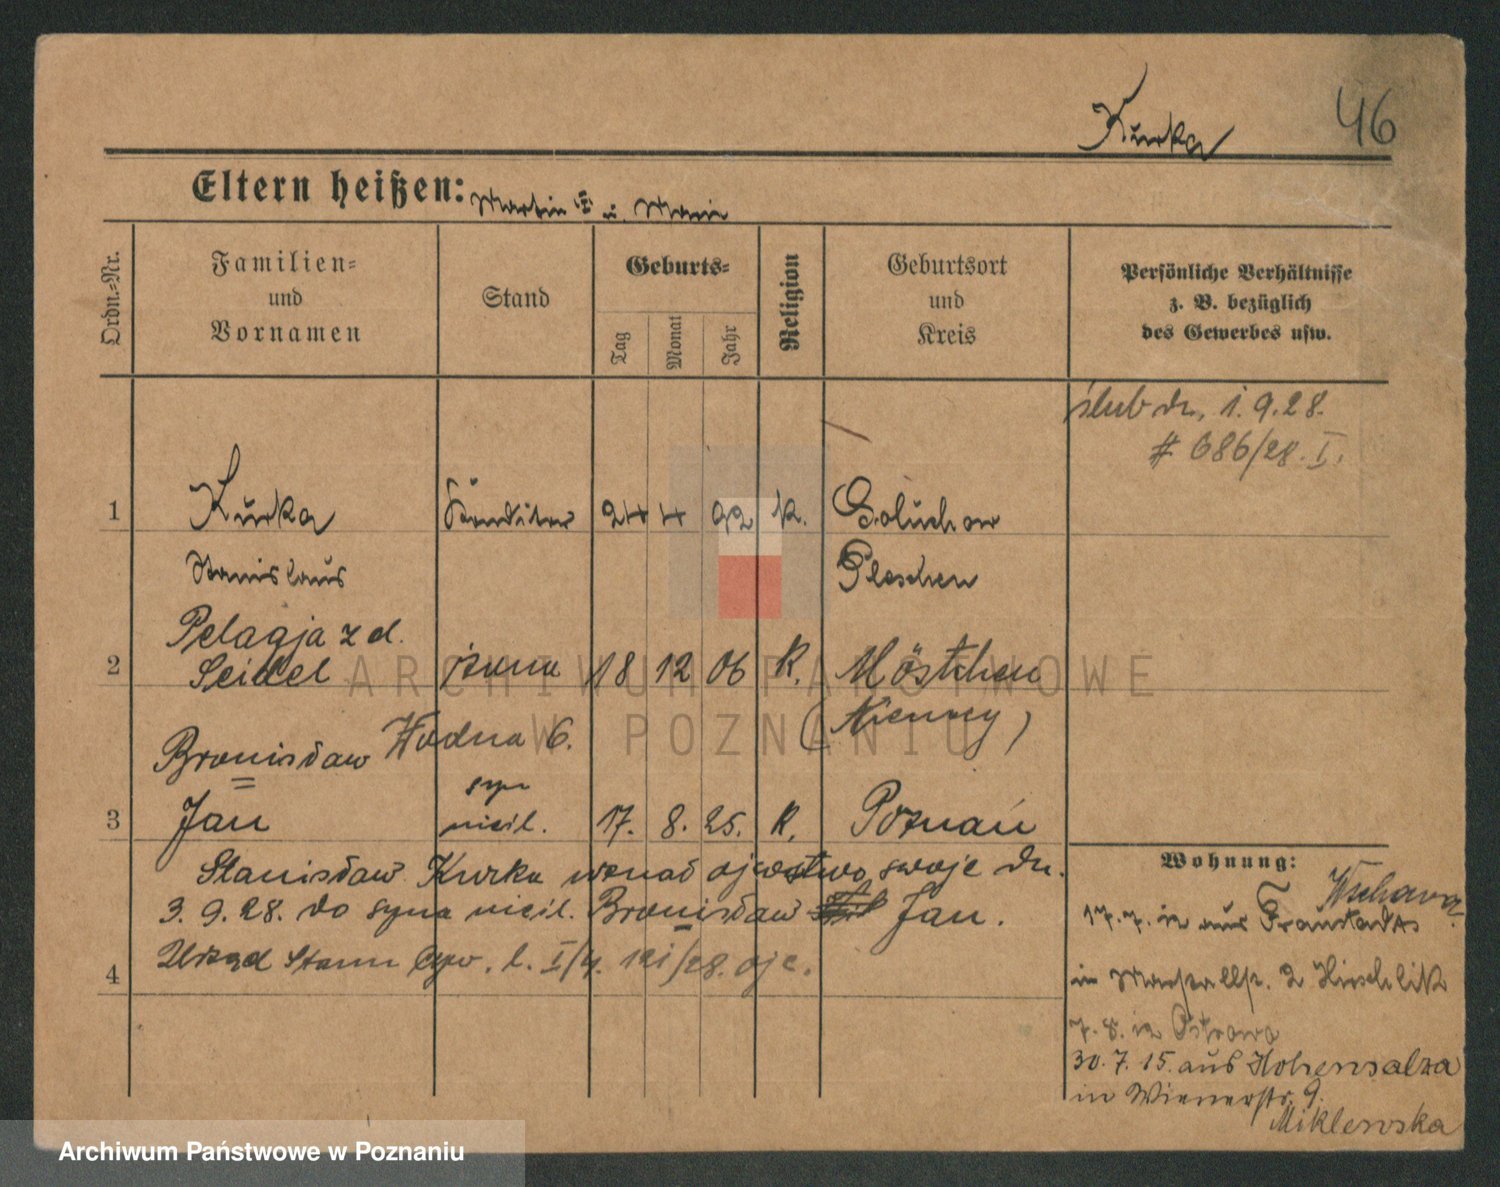 Kurka 46
Eltern heißen: Martin u. Marie
Ordn.=Nr.
Familien=
und
Vornamen
Stand
Geburts=
Tag
Monat
Jahr
Religion
Geburtsort
und
Kreis
Persönliche Verhältnisse
z. B. bezüglich
des Gewerbes usw.
ślub dn. 1.9.28.
# 686/28. I.
1 Kurka Konditor 24 4 92 k. Goluchow
Stanislaus Pleschen
Pelagja z d.
2 Seidel żona 18 12 06 k. Möstchen
(Niemcy)
Bronisław Wodna 6.
syn
3 Jan nieśl. 17. 8. 25. k. Poznań
Stanisław Kurka uznał ojcostwo swoje dn.
3.9.28. do syna nieśl. Bronisław Jan.
4 Urząd Stanu Cyw. l. I/4. 121/28. ojc.
Wohnung:
Wschowa
17.7.12 aus Fraustadt
in 2 Hirschlik
7.8.12 Ostrowo
30.7.15. aus Hohensalza
in Wienerstr. 9.
Miklewska
ARCHIWUM PAŃSTWOWE
W POZNANIU
Archiwum Państwowe w Poznaniu